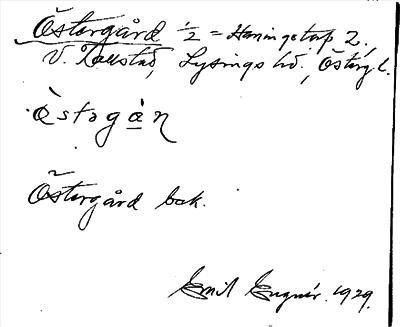 Östergård 1/2 = Haningstorp 2,
V. Tollstad, Lysings hd., Österg. l.
östəgàn
Östergård bok.
Emil Engnér 1929.